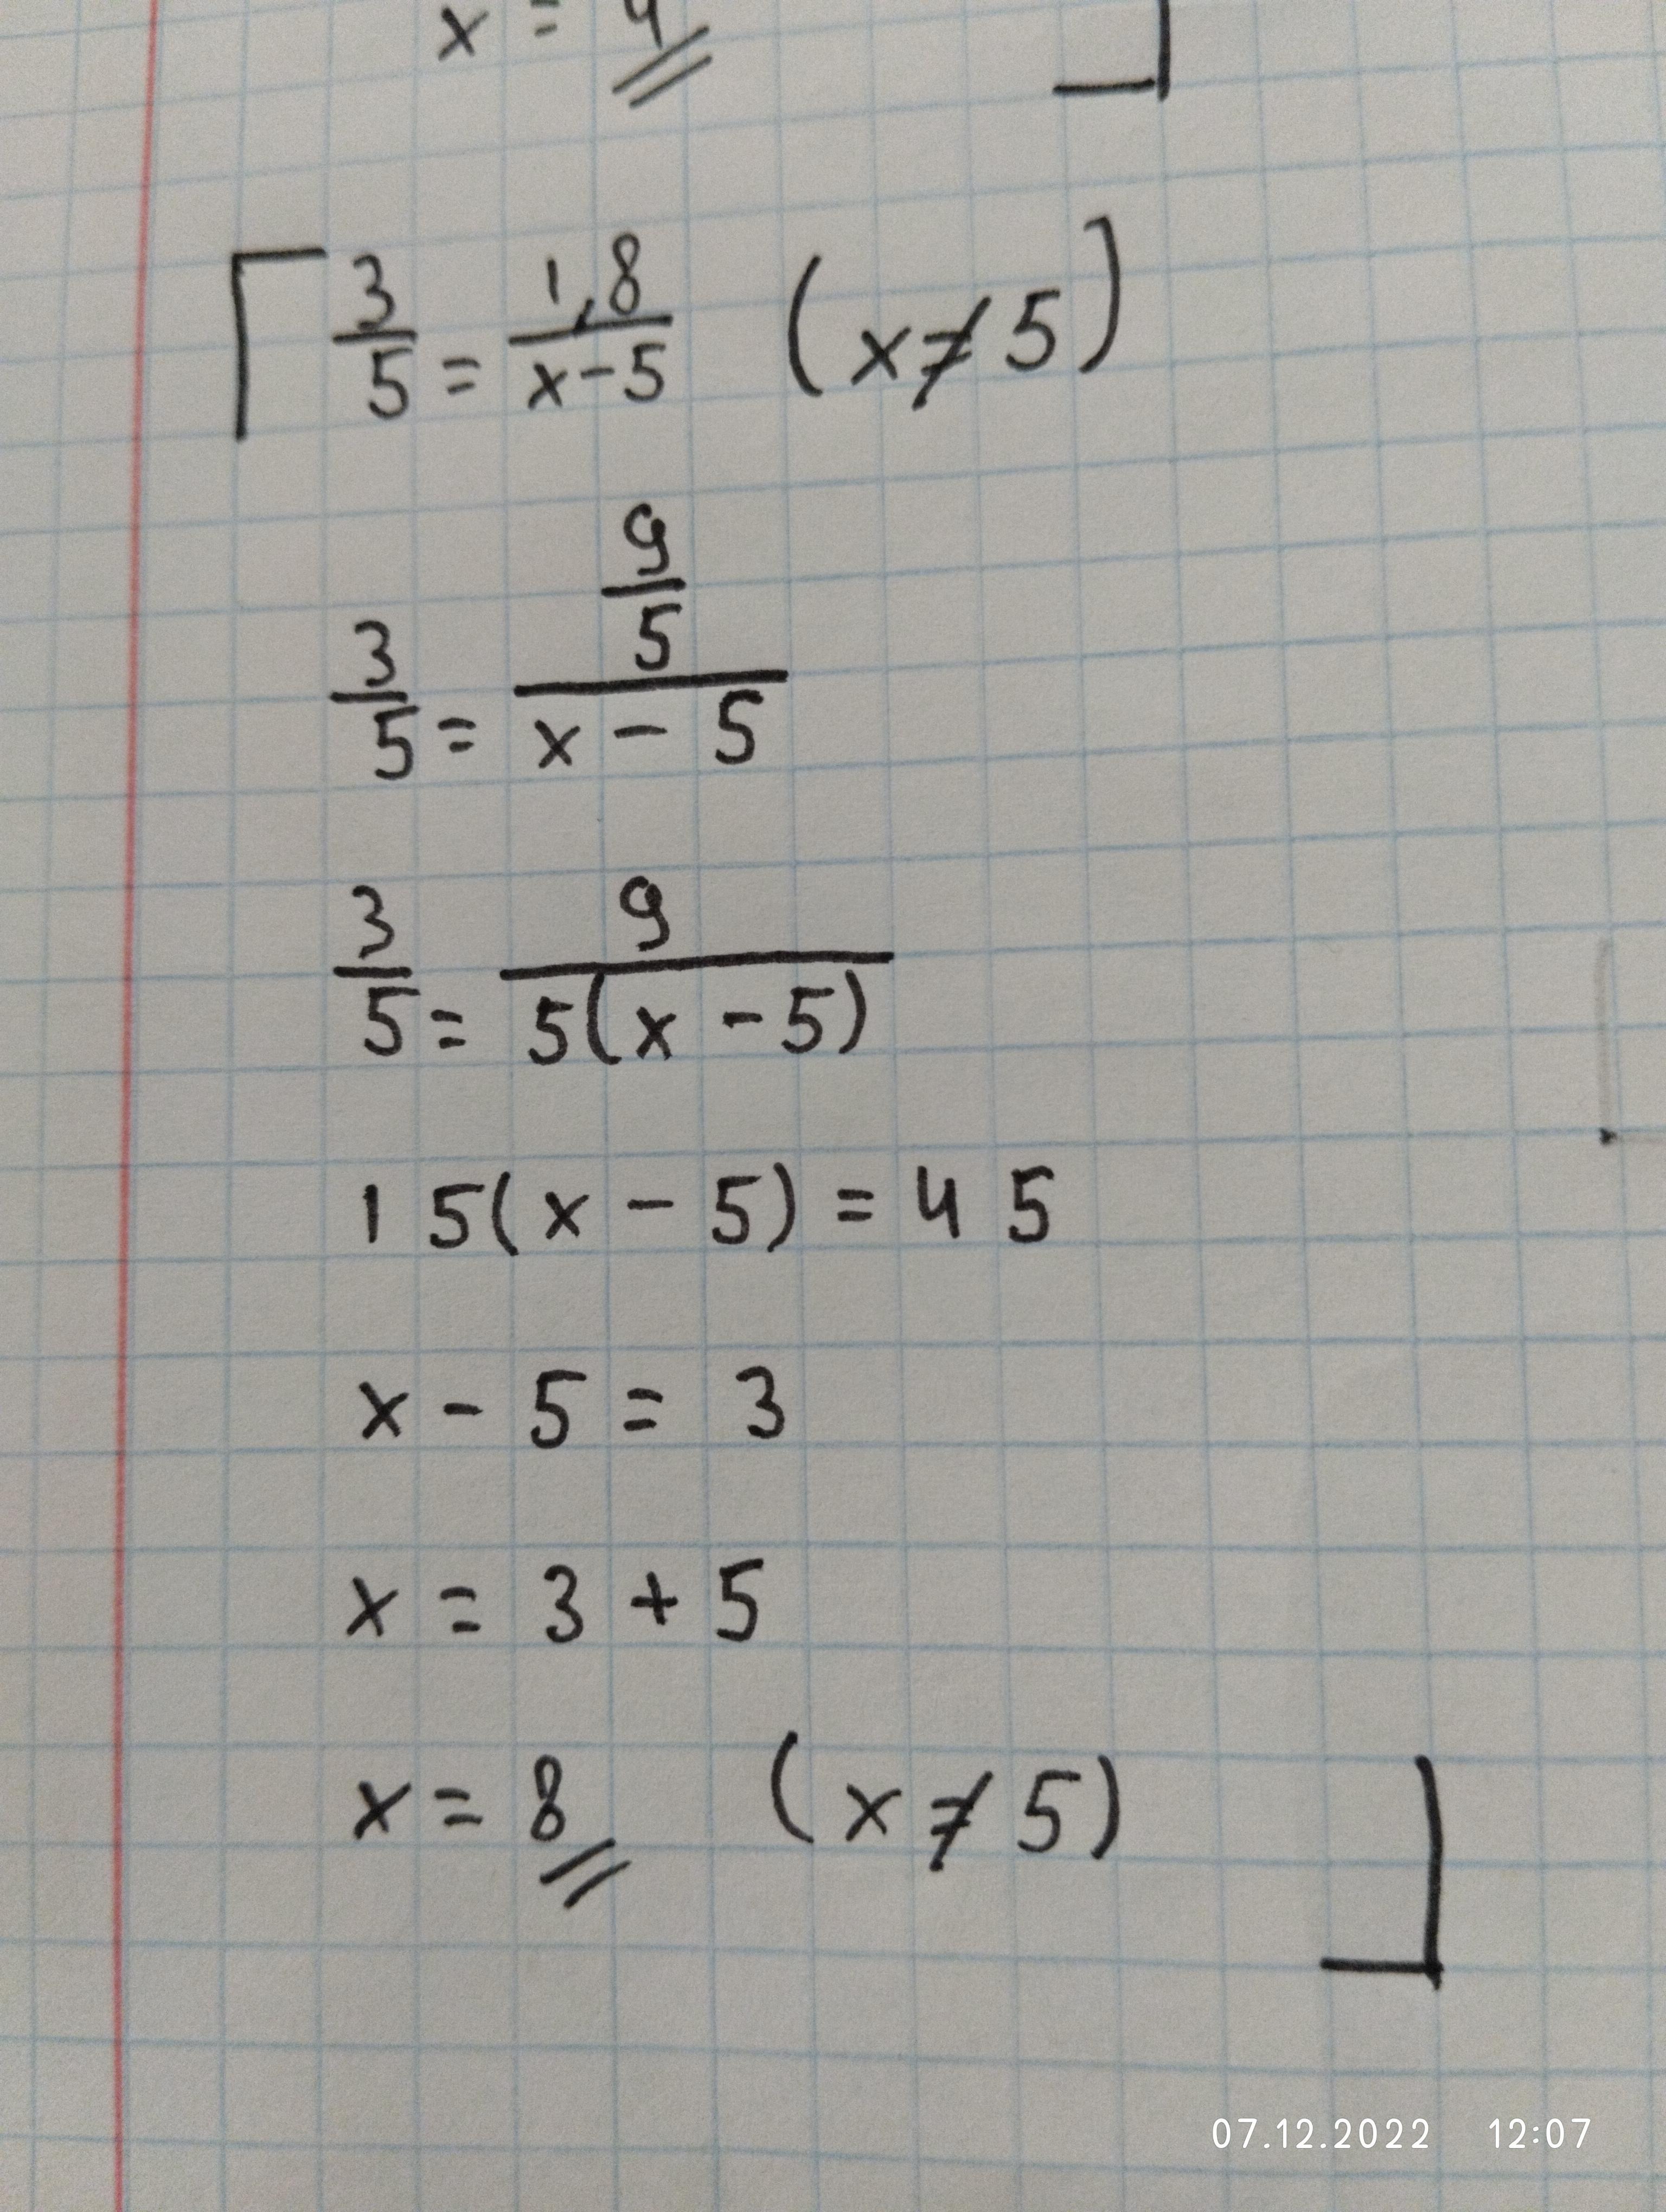 x = 4
3/5 = 1,8/(x-5) (x≠5)
3/5 = (9/5)/(x-5)
3/5 = 9/(5(x-5))
15(x-5)=45
x-5=3
x=3+5
x=8 (x≠5)
07.12.2022 12:07